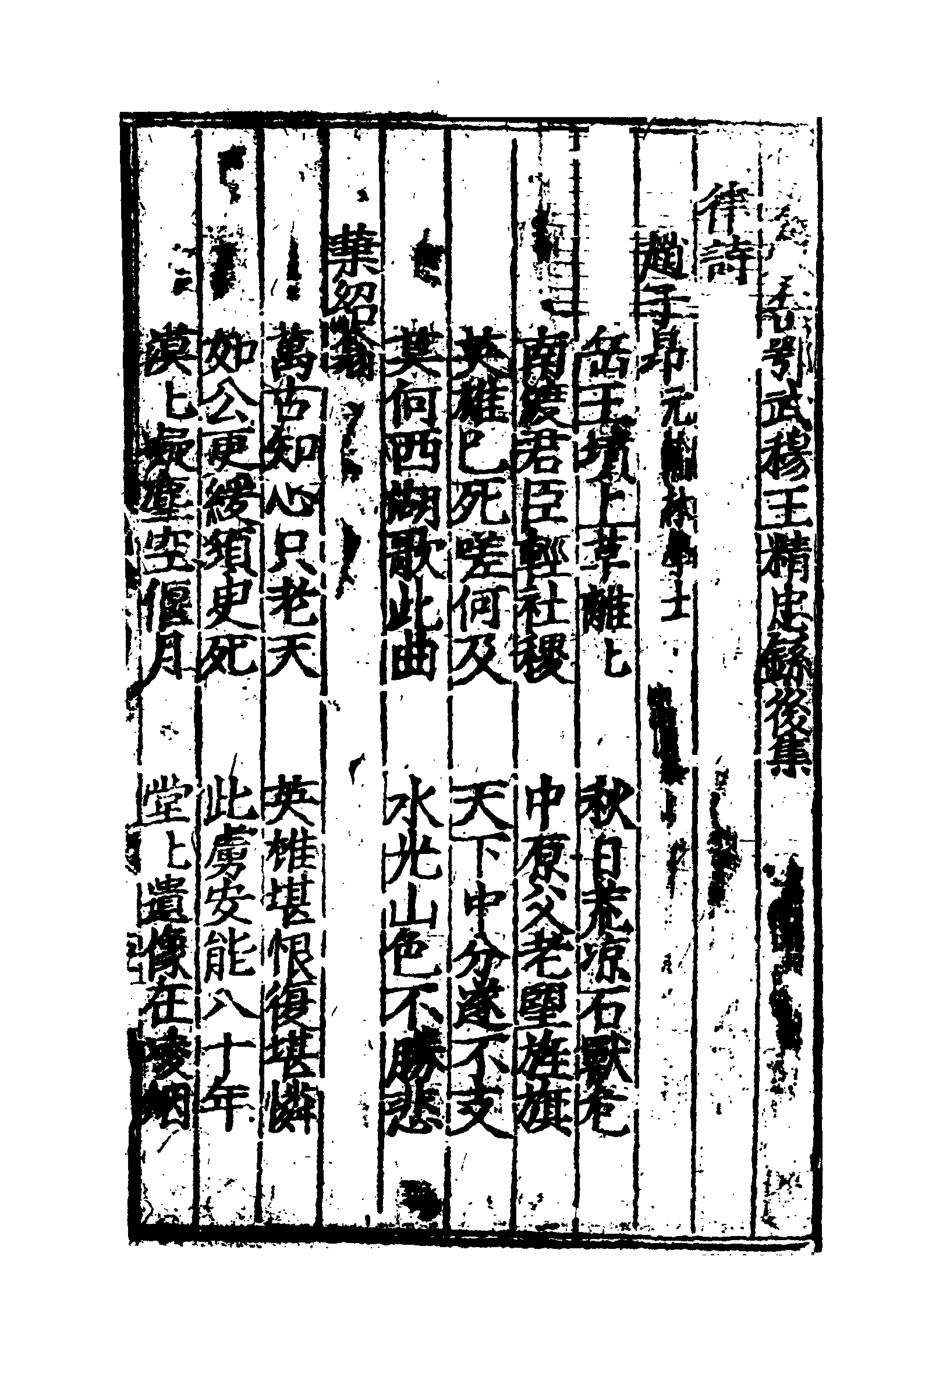 岳鄂武穆王精忠錄後集
律詩
趙子昂 元翰林學士
岳王墳上草離〻 秋日荒凉石獸危
南渡君臣輕社稷 中原父老望旌旗
英雄已死嗟何及 天下中分遂不支
莫何西湖歌此曲 水光山色不勝悲
葉紹翁
萬古知心只老天 英雄堪恨復堪憐
如公更緩須臾死 此虜安能八十年
漠〻凝塵空偃月 堂〻遺像在凌烟